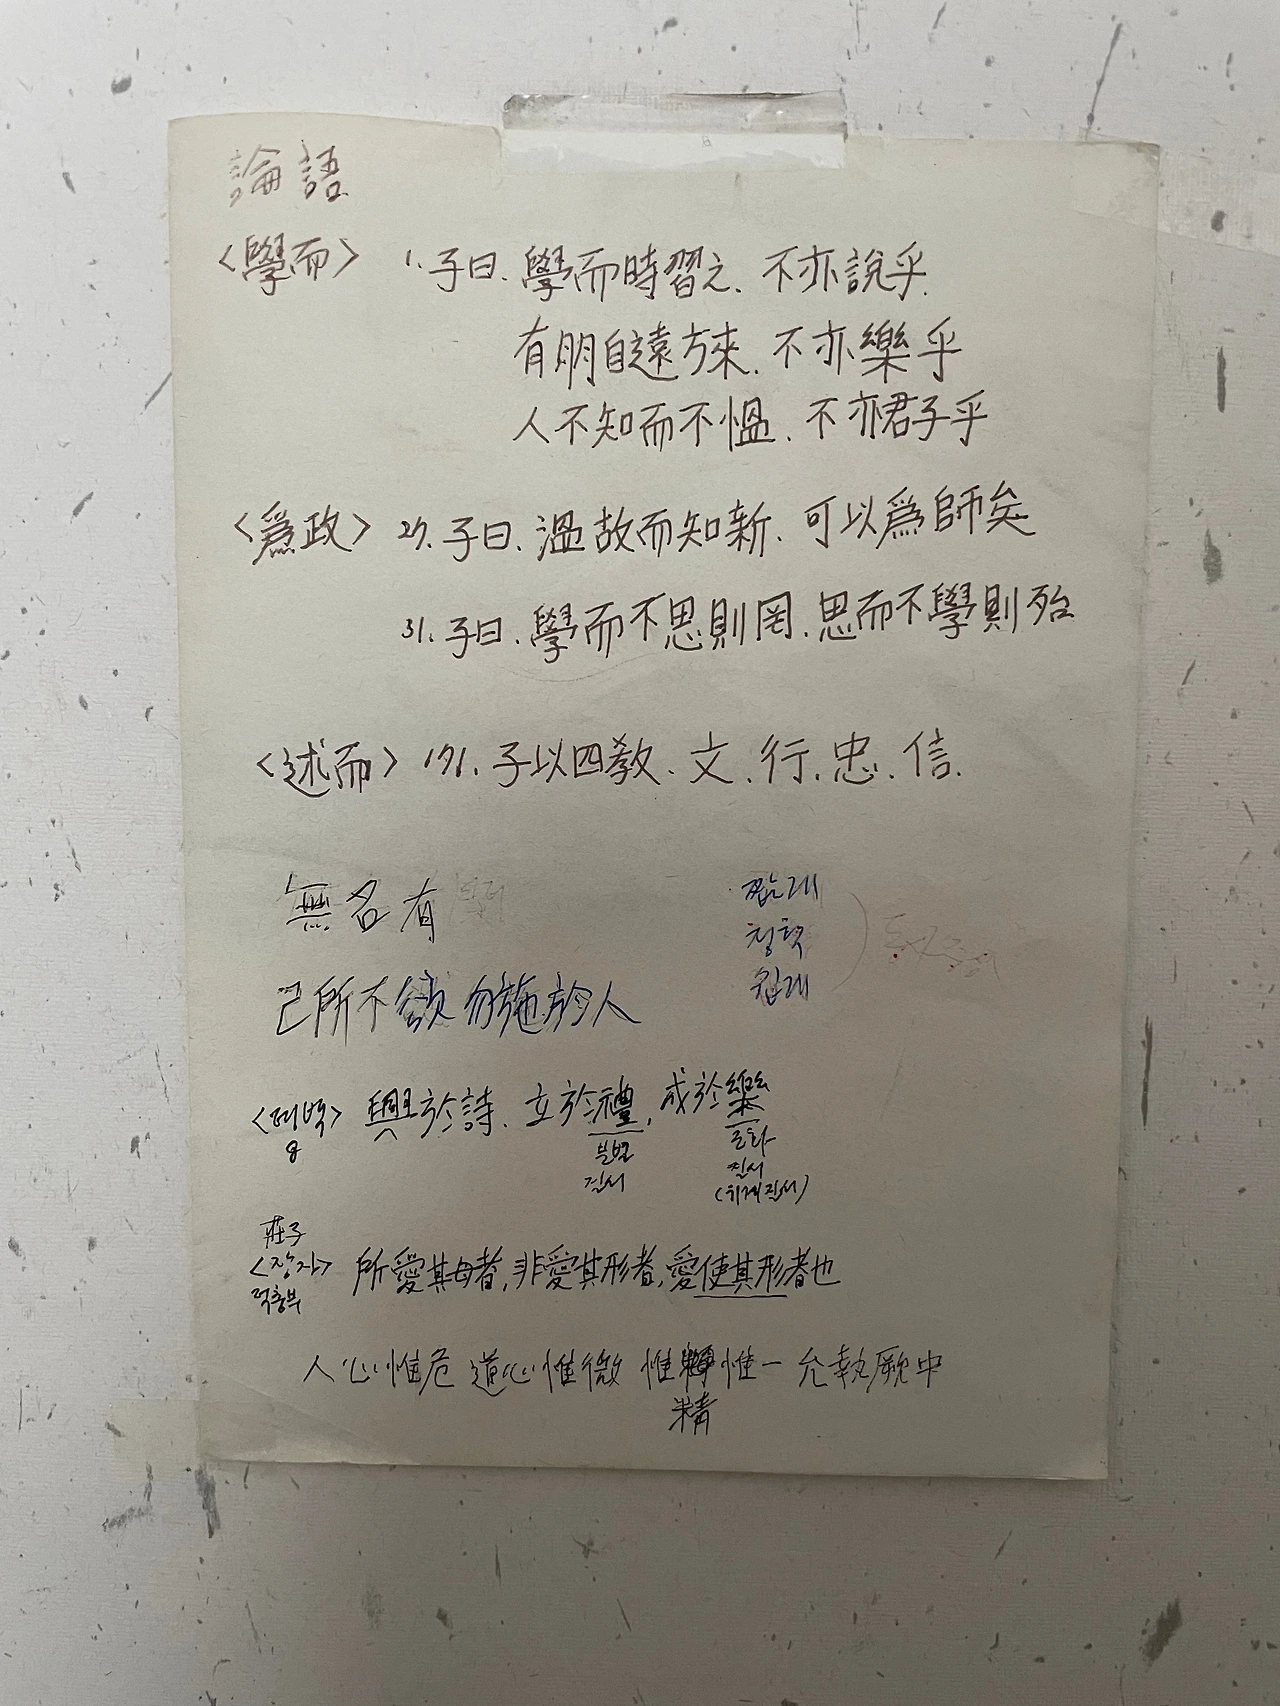 論語
<學而> 1. 子曰. 學而時習之. 不亦說乎.
有朋自遠方來. 不亦樂乎
人不知而不慍. 不亦君子乎
<爲政> 27. 子曰. 溫故而知新. 可以爲師矣
31. 子曰. 學而不思則罔. 思而不學則殆
<述而> 171. 子以四敎. 文. 行. 忠. 信.
無名有
己所不欲 勿施於人
興於詩. 立於禮, 成於樂
분별
질서
조화
질서
(위계질서)
莊子
<장자> 所愛其母者, 非愛其形者, 愛使其形者也
덕충부
人心惟危 道心惟微 惟 惟一 允執厥中
精